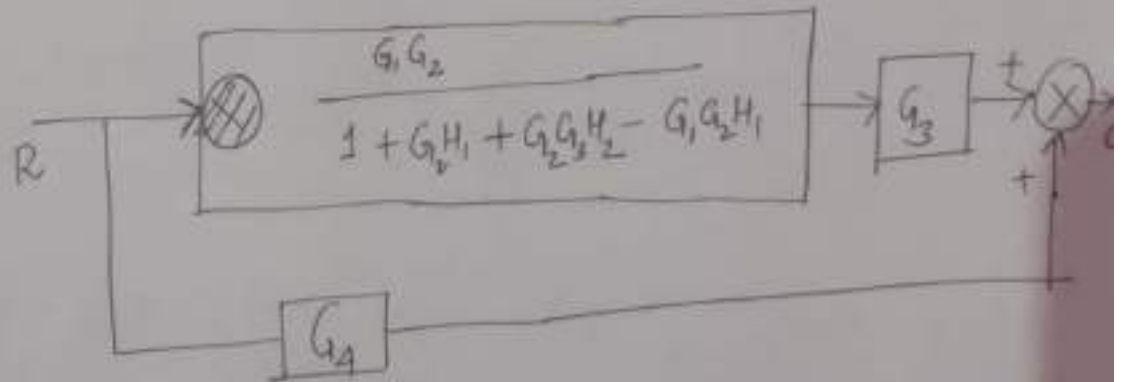 G₁G₂
1 + G₂H₁ + G₂G₃H₂ - G₁G₂H₁
R
G₃
+
+
G₄